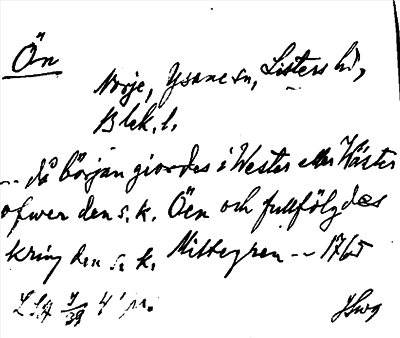 Ön
Norje, Ysane sn, Listers hd,
Blek. l.
-- då början giordes i Wester eller Wäster
ofwer den s. k. Öen och fullfölgdes
kring den s. k. Mittegren -- 1765
4